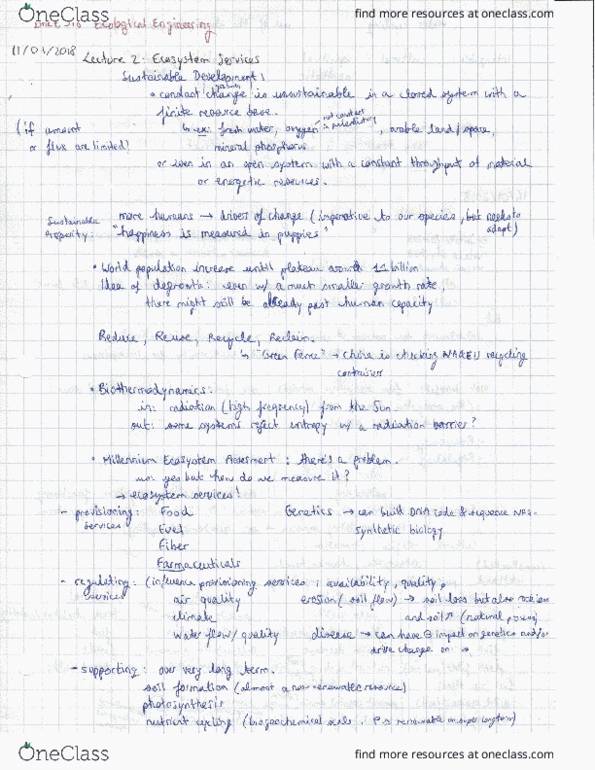 OneClass
find more resources at oneclass.com
Ecological Engineering
11/01/2018
Lecture 2: Ecosystem Services
Sustainable Development:
• constant change is unsustainable in a closed system with a
finite resource base.
(if amount
or flux are limited)
↳ ex: fresh water, oxygen, arable land/space,
not constant
mineral phosphorus
or even in an open system with a constant throughput of material
or energetic resources.
Sustainable
prosperity:
more humans → drivers of change (imperative to our species, but needs to
adapt)
"happiness is measured in puppies"
• World population increase until plateau around 11 billion.
Idea of degrowth: even w/ a much smaller growth rate,
there might still be already past human capacity
Reduce, Reuse, Recycle, Reclaim.
↳ "Green Fence" → China is checking recycling
containers
• Biothermodynamics:
in: radiation (high frequency) from the Sun
out: some systems reject entropy w/ a radiation barrier?
• Millennium Ecosystem Assesment: there's a problem.
um yes but how do we measure it?
→ ecosystem services!
- provisioning services: Food
Fuel
Fiber
Farmaceuticals
Genetics → can build DNA code & sequence
synthetic biology
- regulating services: (influence provisioning services: availability, quality,
air quality
climate
water flow/quality
erosion (soil flow) → soil loss but also
and soil (natural power)
disease → can have ⊖ impact on genetics and/or
drive change on
- supporting: over very long term.
soil formation (almost a non-renewable resource)
photosynthesis
nutrient cycling (biogeochemical scale. P is renewable on super long term)
OneClass
find more resources at oneclass.com